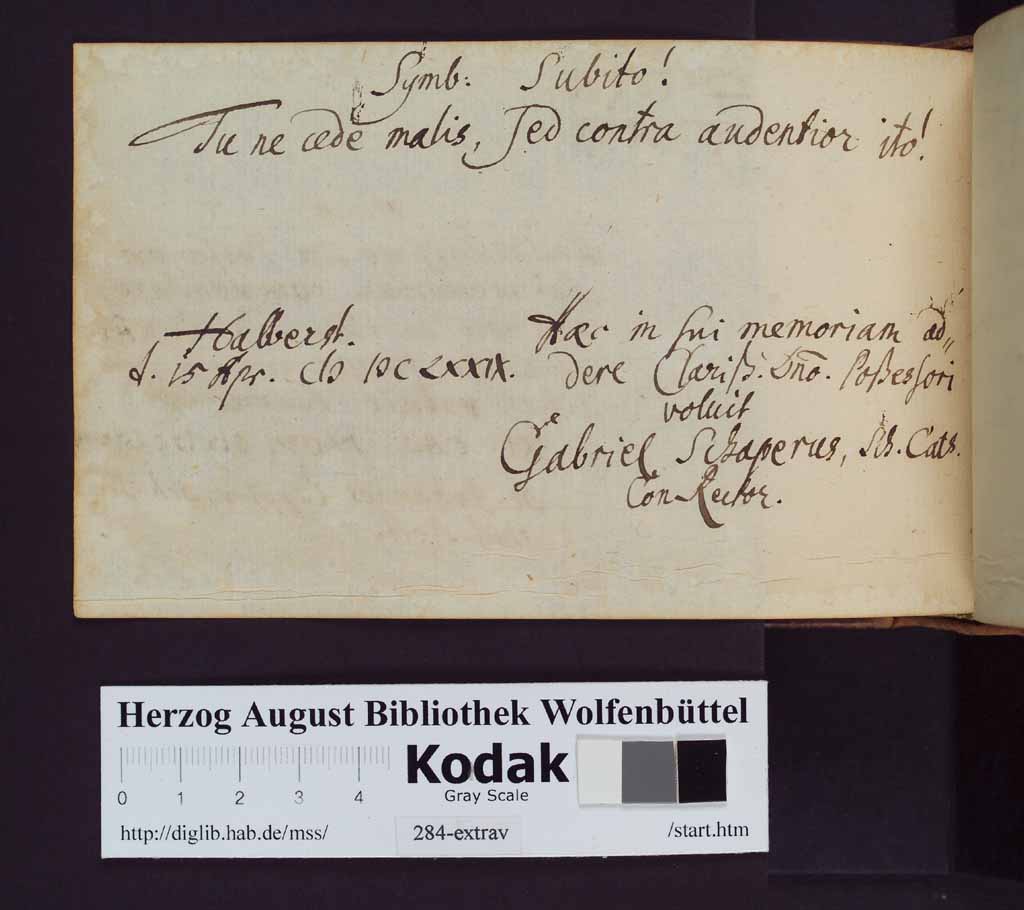 Symb: Subito!
Tu ne cede malis, sed contra audentior ito!
Halberst.
d. 15 Apr. CIↃ IↃC LXXIX.
Hæc in sui memoriam ad„
dere Clariß. Dño. Poßessori
voluit
Gabriel Schaperus, Sch. Cath.
Con-Rector.
Herzog August Bibliothek Wolfenbüttel
Kodak
Gray Scale
0 1 2 3 4
http://diglib.hab.de/mss/ 284-extrav /start.htm